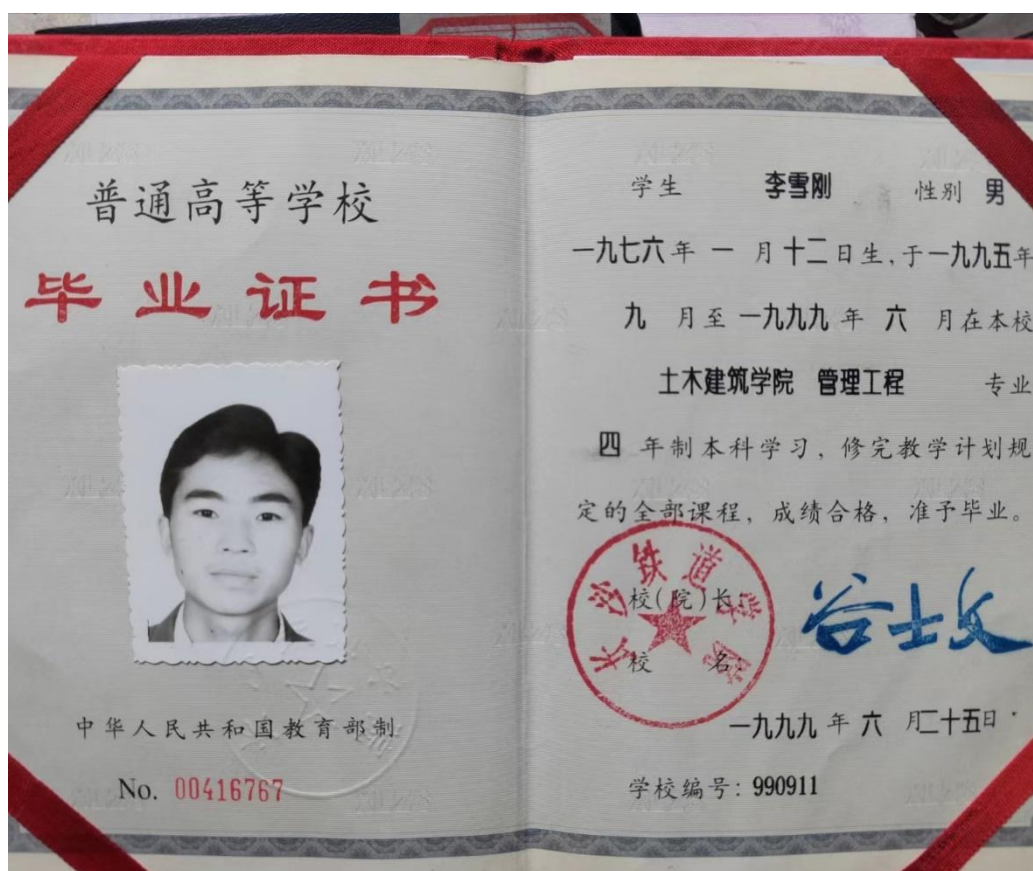 普通高等学校
毕业证书
中华人民共和国教育部制
No. 00416767
学生 李雪刚 性别 男
一九七六年 一 月十二日生,于一九九五年
九 月至一九九九年 六 月在本校
土木建筑学院 管理工程 专业
四 年制本科学习，修完教学计划规
定的全部课程，成绩合格，准予毕业。
长沙铁道学院
校(院)长:
谷士文
校 名:
一九九九年六 月二十五日
学校编号: 990911